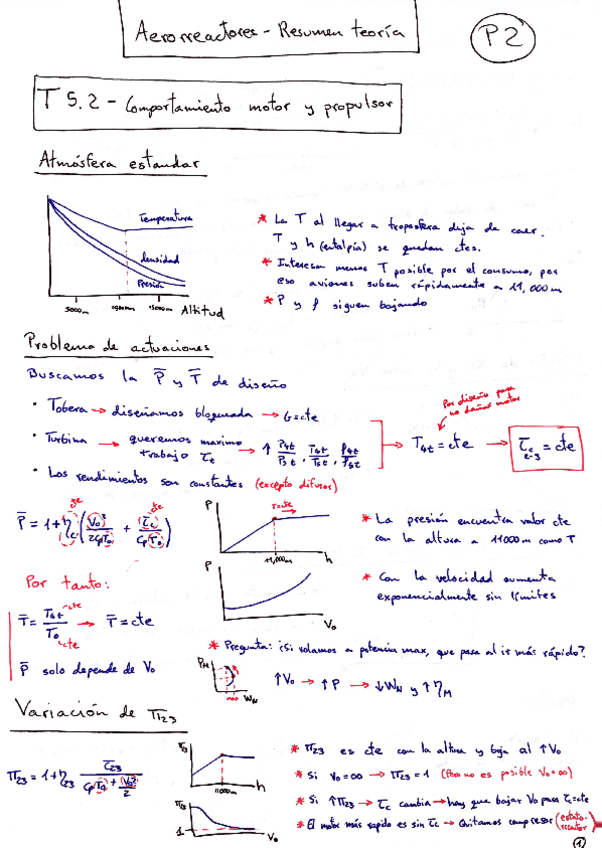 Aerorreactores - Resumen teoría
P2
T 5.2 - Comportamiento motor y propulsor
Atmósfera estandar
Temperatura
densidad
Presión
5000m
15000m
Altitud
* La T al llegar a troposfera deja de caer.
T y h (entalpía) se quedan ctes.
* Interesa menos T posible por el consumo, por
eso aviones suben rápidamente a 11,000m
* P y ρ siguen bajando
Problema de actuaciones
Buscamos la P̄ y T̄ de diseño
· Tobera → diseñamos bloqueada → G=cte
· Turbina → queremos maximo
trabajo τt → ↑ P4t/P5t, T4t/T5t, ρ4t/ρ5t
Por diseño para
no dañar motor
→ T4t = cte → τc = cte
2-3
· Los rendimientos son constantes (excepto difusor)
cte cte
P̄ = 1+ηc (V0²/2CpT0 + τc/CpT0)
P
T=cte
11,000m
h
* La presión encuentra valor cte
con la altura a 11000m como T
P
V0
* Con la velocidad aumenta
exponencialmente sin límites
Por tanto:
T̄ = T4t/T0 → T̄ = cte
cte
cte
P̄ solo depende de V0
* Pregunta: ¿Si volamos a potencia max, que pasa al ir más rápido?
PM
WN
↑V0 → ↑P → ↓WN y ↑ηM
Variación de π23
π23 = 1+η23 τ23/(CpT0 + V0²/2)
π23
11000m
h
π23
1
V0
* π23 es cte con la altura y baja al ↑V0
* Si V0=∞ → π23=1 (Pero no es posible V0=∞)
* Si ↑π23 → τc cambia → hay que bajar V0 para τc=cte
* El motor más rapido es sin τc → Quitamos compresor (estato-
rreactor)
1